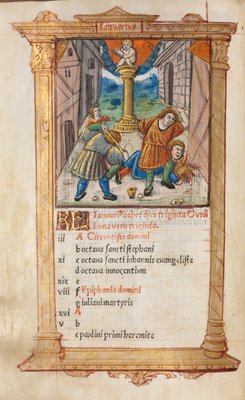 Januarius
Januari9 habet dies triginta
Luna vero triginta.
iii A Circuncisio domini
b octava sancti stephani
xi c octava sancti iohannis euangeliste
d octava innocentum
xix e
viii f Epiphania domini
g iuliani martyris
xvi A
v b
c paulini primi heremite